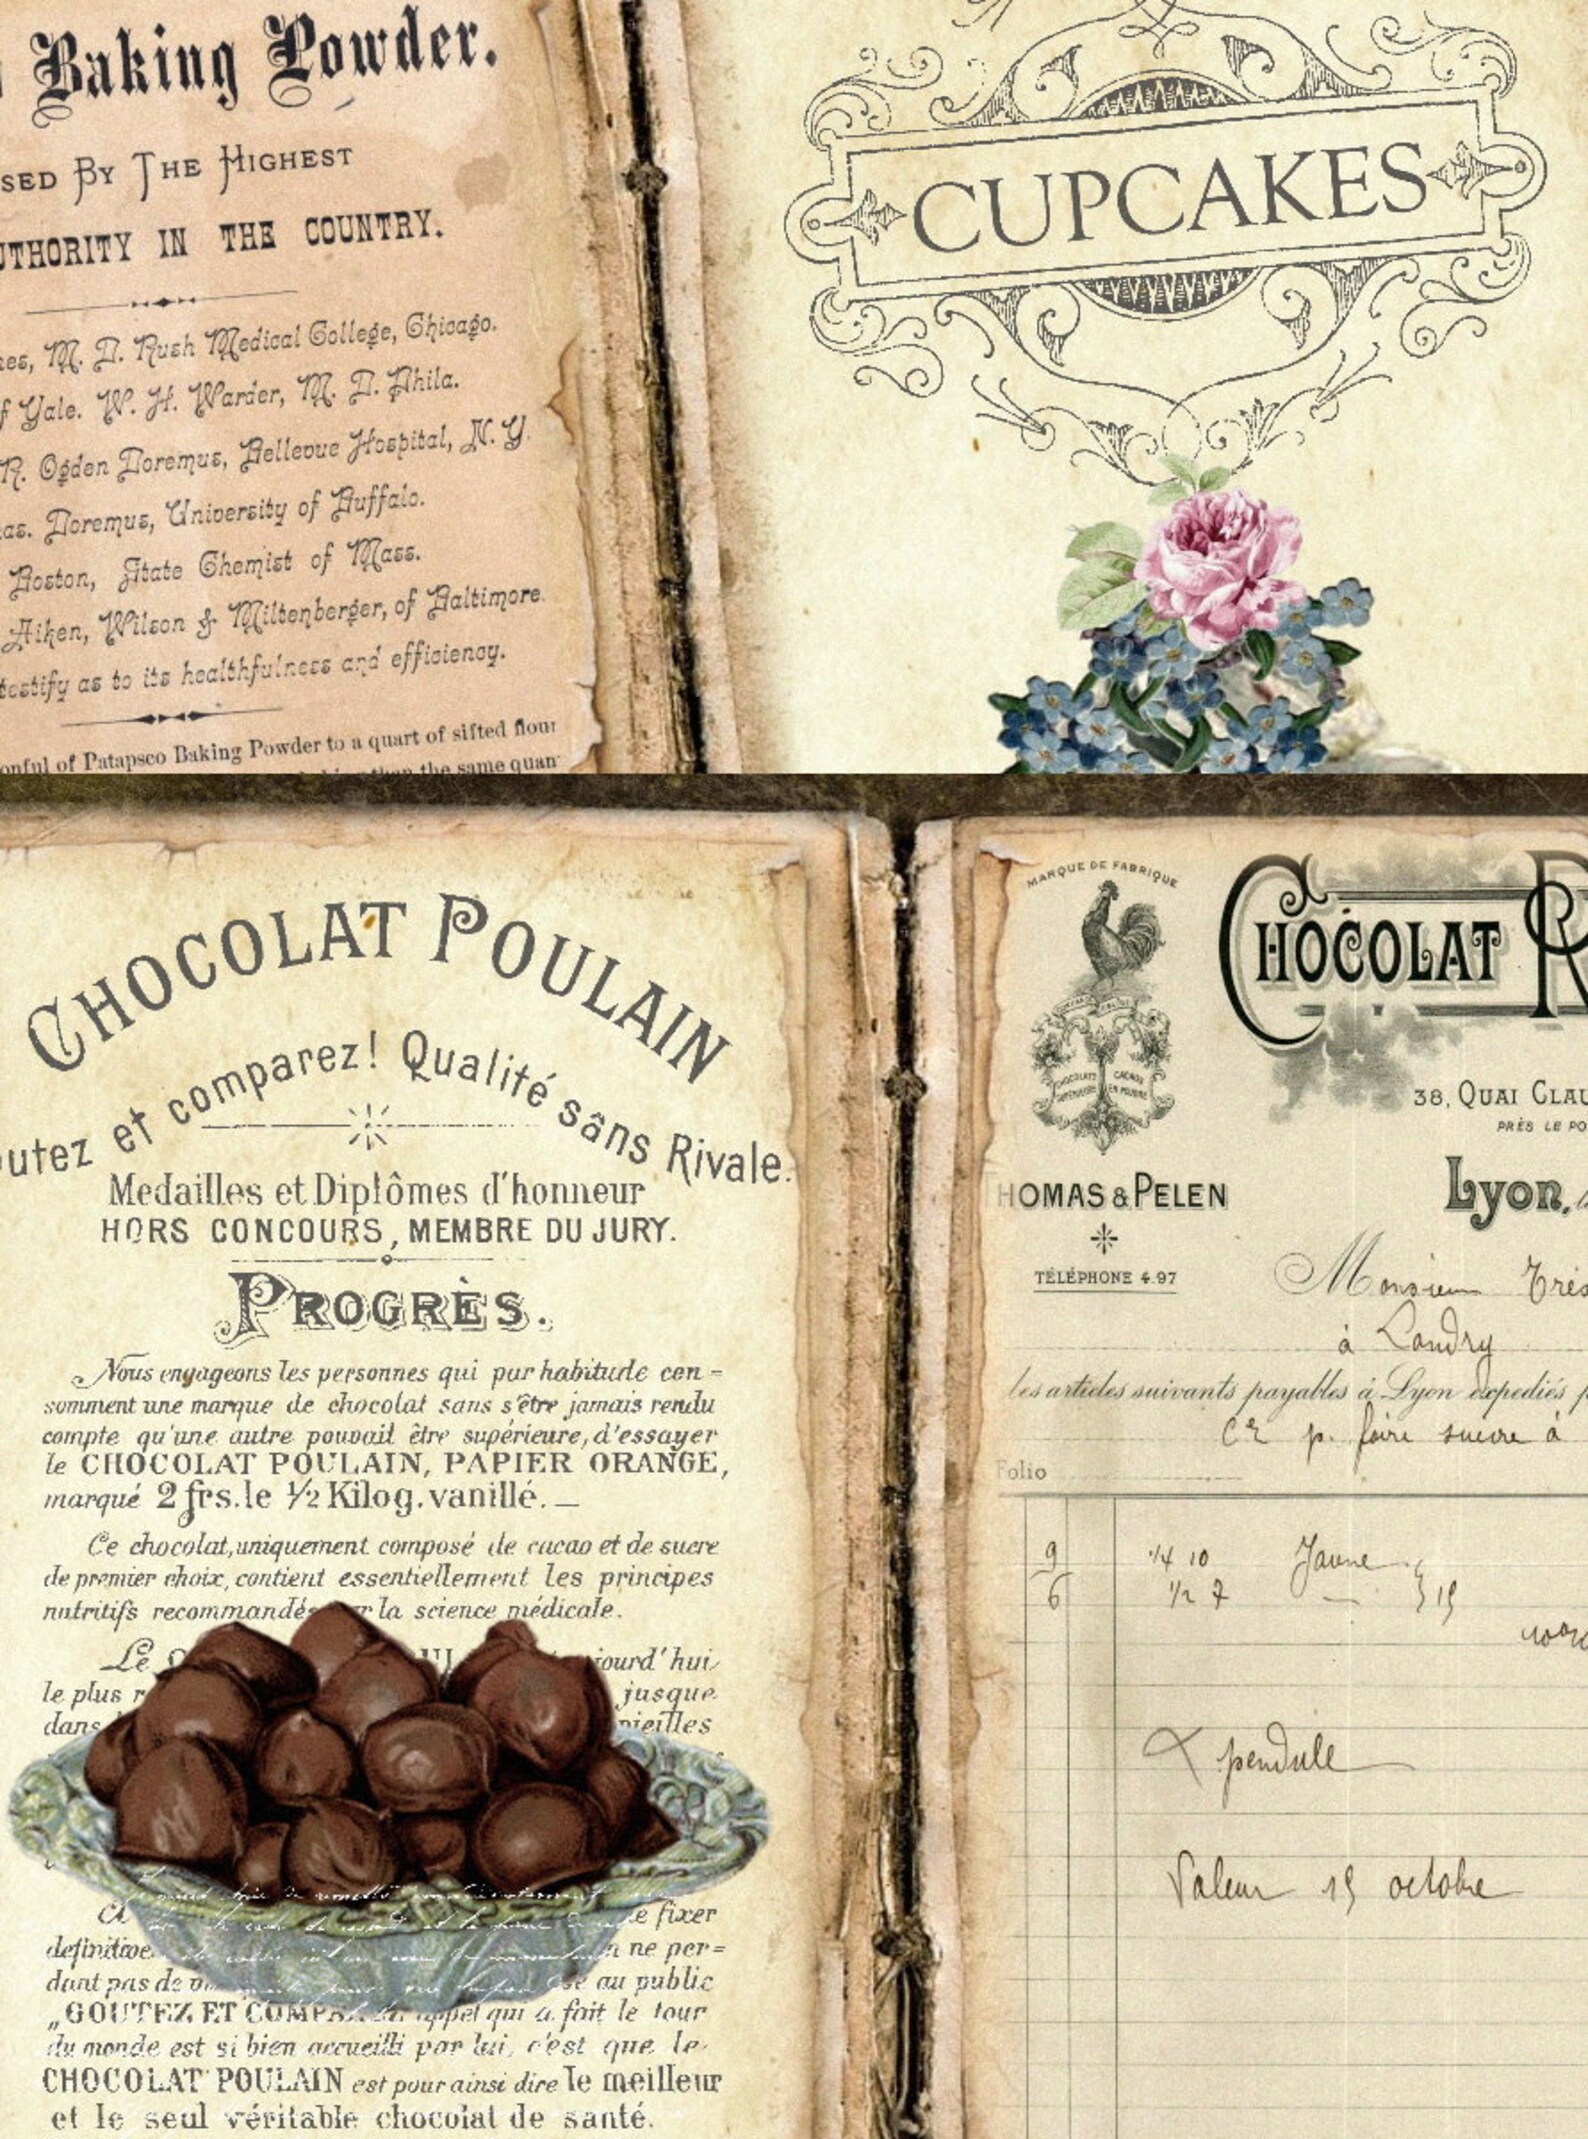 Baking Powder.
By The Highest
IN THE COUNTRY.
M. D. Rush Medical College, Chicago.
Yale. W. H. Warder, M. D. Phila.
R. Ogden Doremus, Bellevue Hospital, N. Y.
Doremus, University of Buffalo.
Boston, State Chemist of Mass.
Aiken, Wilson & Miltenberger, of Baltimore.
testify as to its healthfulness and efficiency.
of Patapsco Baking Powder to a quart of sifted flour
than the same quan
CUPCAKES
CHOCOLAT POULAIN
et comparez! Qualité sans Rivale.
Medailles et Diplômes d'honneur
HORS CONCOURS, MEMBRE DU JURY.
PROGRÈS.
Nous engageons les personnes qui par habitude con=
somment une marque de chocolat sans s'être jamais rendu
compte qu'une autre pouvait être supérieure, d'essayer
le CHOCOLAT POULAIN, PAPIER ORANGE,
marqué 2 frs. le ½ Kilog. vanillé. _
Ce chocolat, uniquement composé de cacao et de sucre
de premier choix, contient essentiellement les principes
nutritifs recommandés la science médicale.
Le
le plus jusque
dans vieilles
fixer
ne per=
dant pas de au public
„GOUTEZ ET appel qui a fait le tour
du monde est si bien accueilli par lui, c'est que le
CHOCOLAT POULAIN est pour ainsi dire le meilleur
et le seul véritable chocolat de santé.
MARQUE DE FABRIQUE
CHOCOLAT
38, QUAI
PRÈS LE
& PELEN
Lyon,
TÉLÉPHONE 4.97
Monsieur
à Landry
les articles suivants payables à Lyon expediés
p. faire suivre à
Folio
9 1/4 10 Jaune
6 1/2 7 15
pendule
Valeur 15 octobre